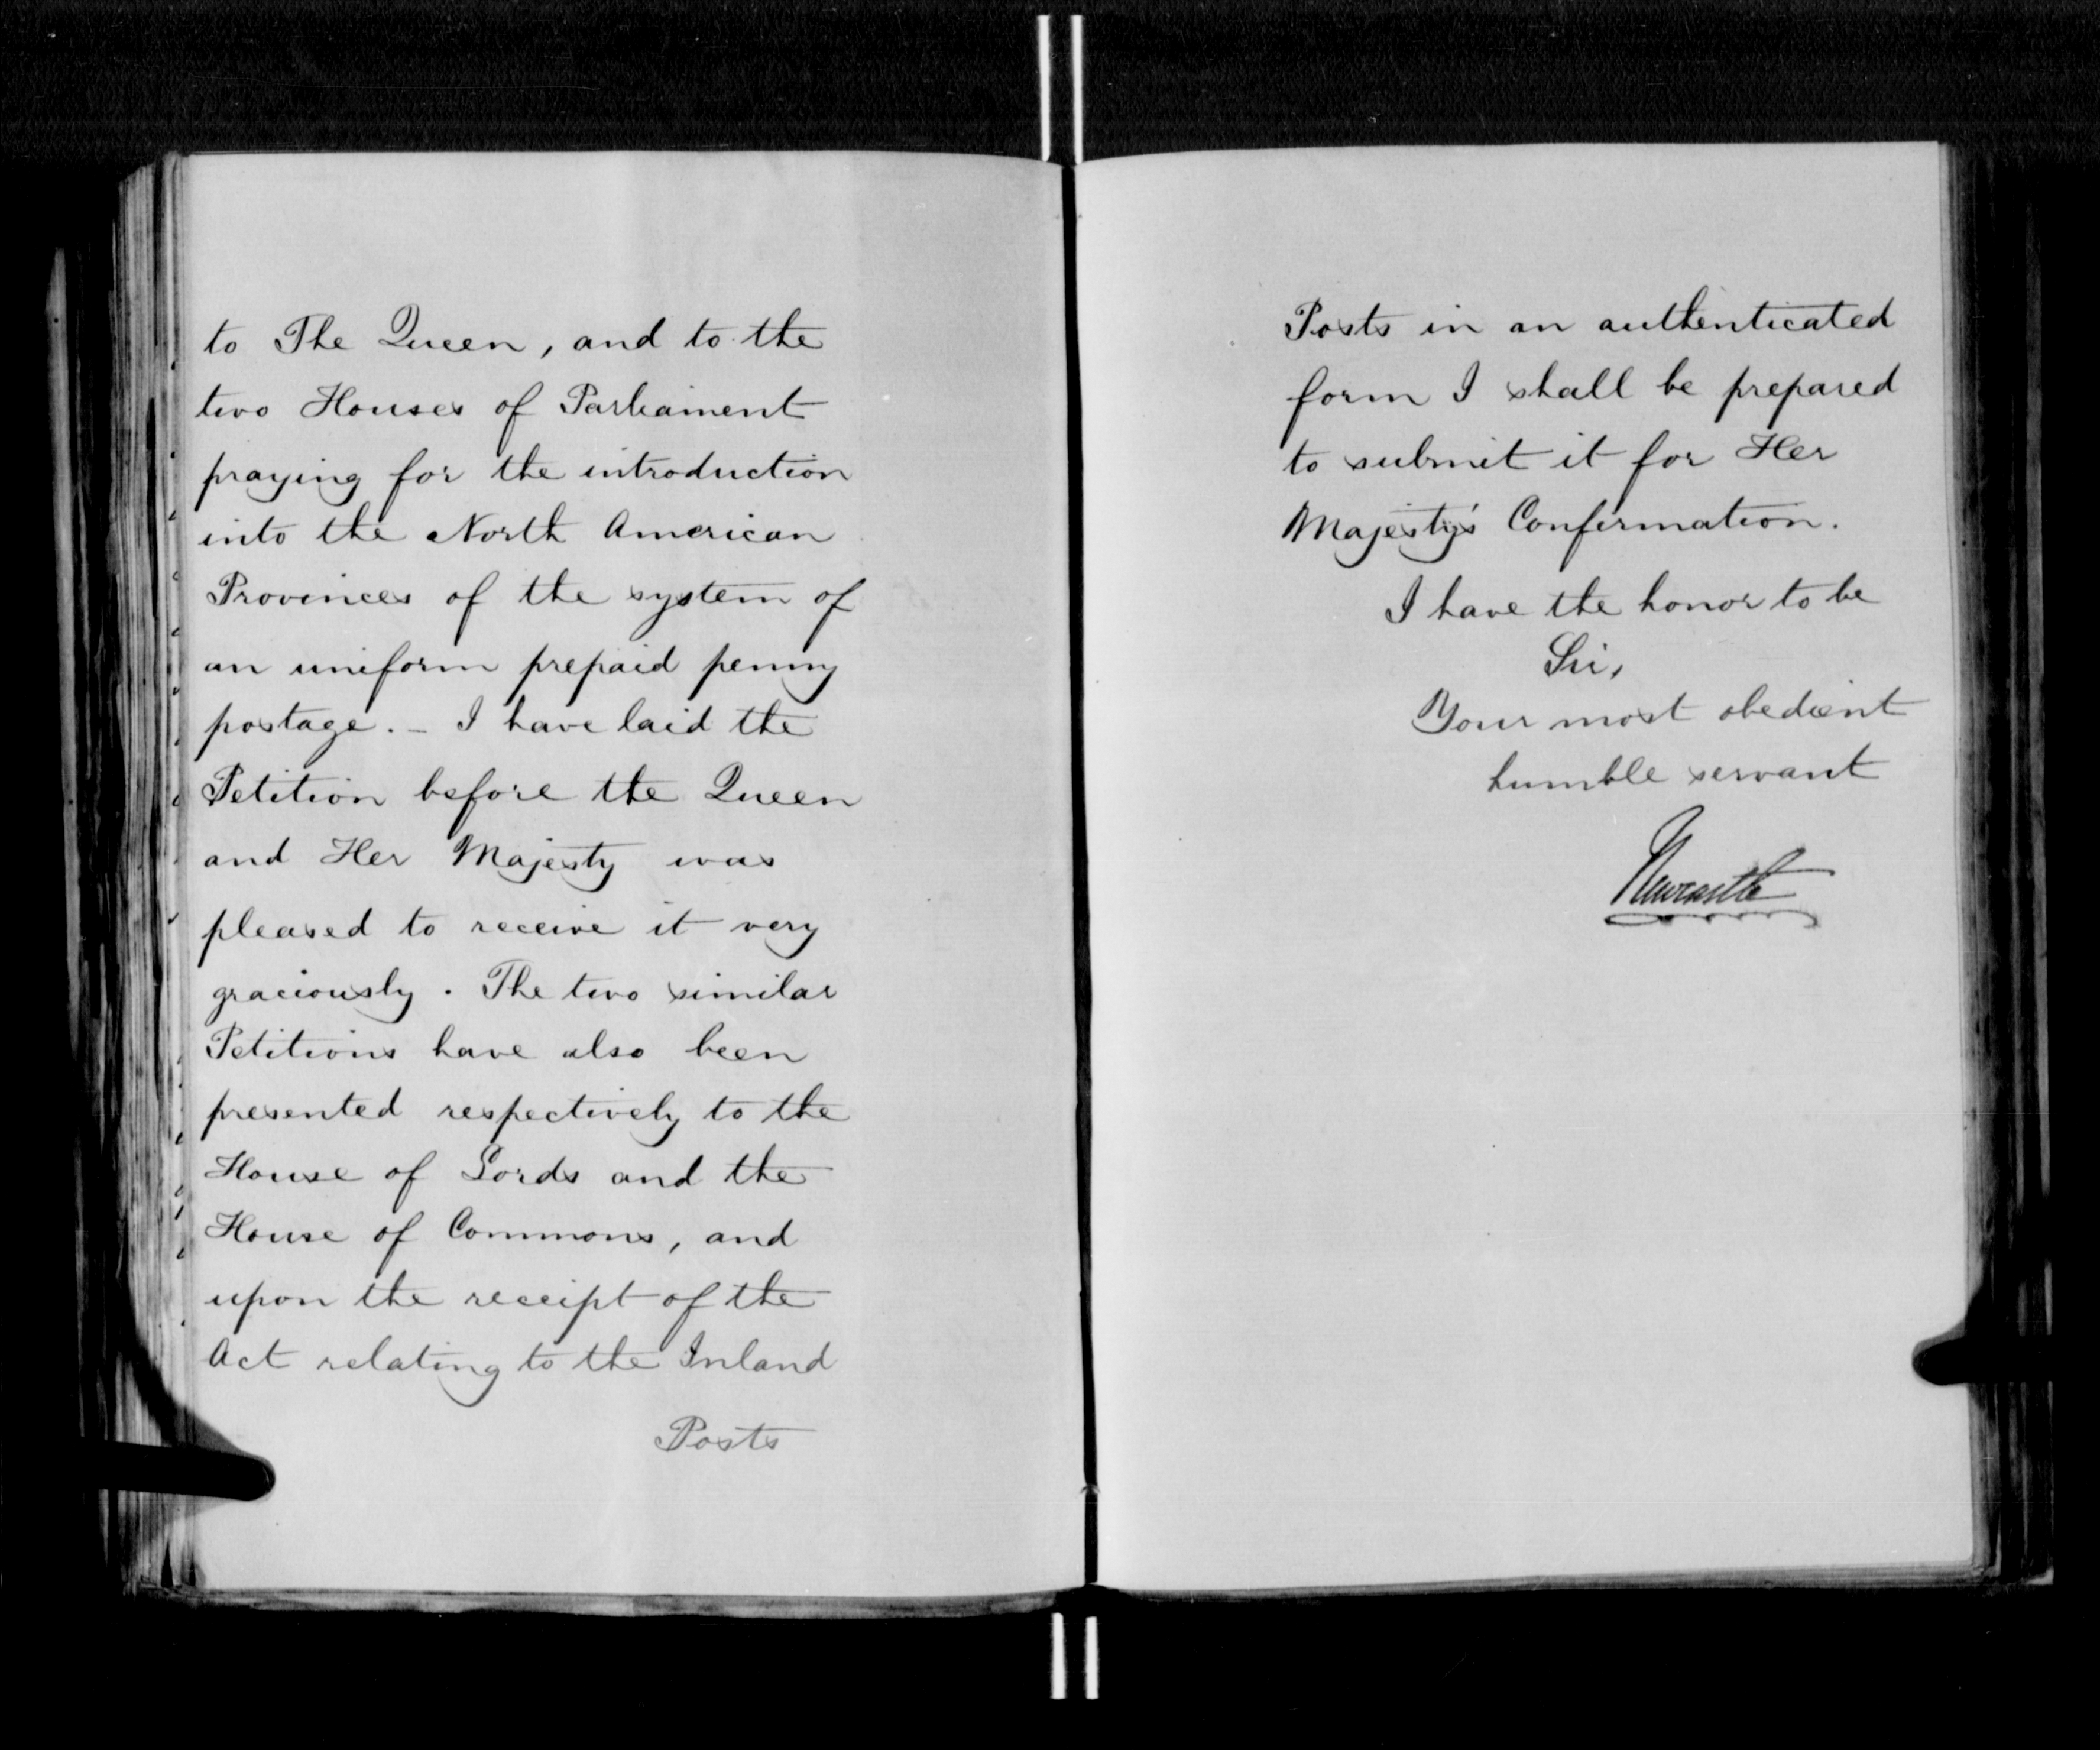 to The Queen, and to the
two Houses of Parliament
praying for the introduction
into the North American
Provinces of the system of
an uniform prepaid penny
postage. - I have laid the
Petition before the Queen
and Her Majesty was
pleased to receive it very
graciously. The two similar
Petitions have also been
presented respectively to the
House of Lords and the
House of Commons, and
upon the receipt of the
Act relating to the Inland
Posts
Posts in an authenticated
form I shall be prepared
to submit it for Her
Majesty's Confirmation.
I have the honor to be
Sir,
Your most obedient
humble servant
Newcastle